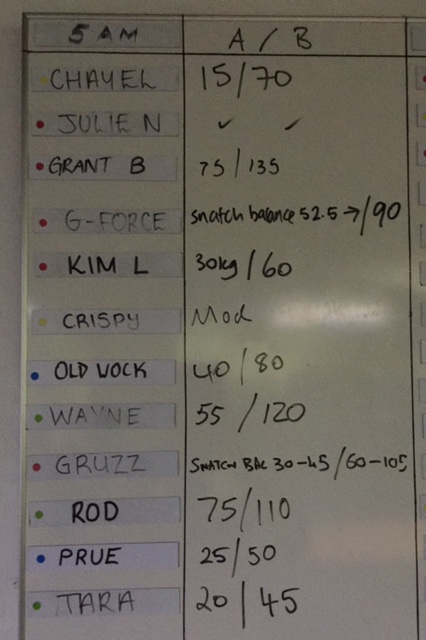 5 AM A / B
CHAYEL 15/70
JULIE N ✓ ✓
GRANT B 75/135
G-FORCE snatch balance 52.5 →/90
KIM L 30kg/60
CRISPY Mod
OLD VOCK 40/80
WAYNE 55/120
GRUZZ SNATCH BAL 30-45/60-105
ROD 75/110
PRUE 25/50
TARA 20/45